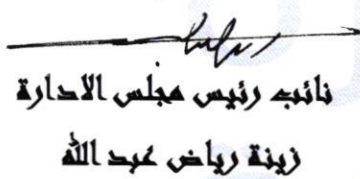 نائب رئيس مجلس الادارة
زينة رياض عبد الله